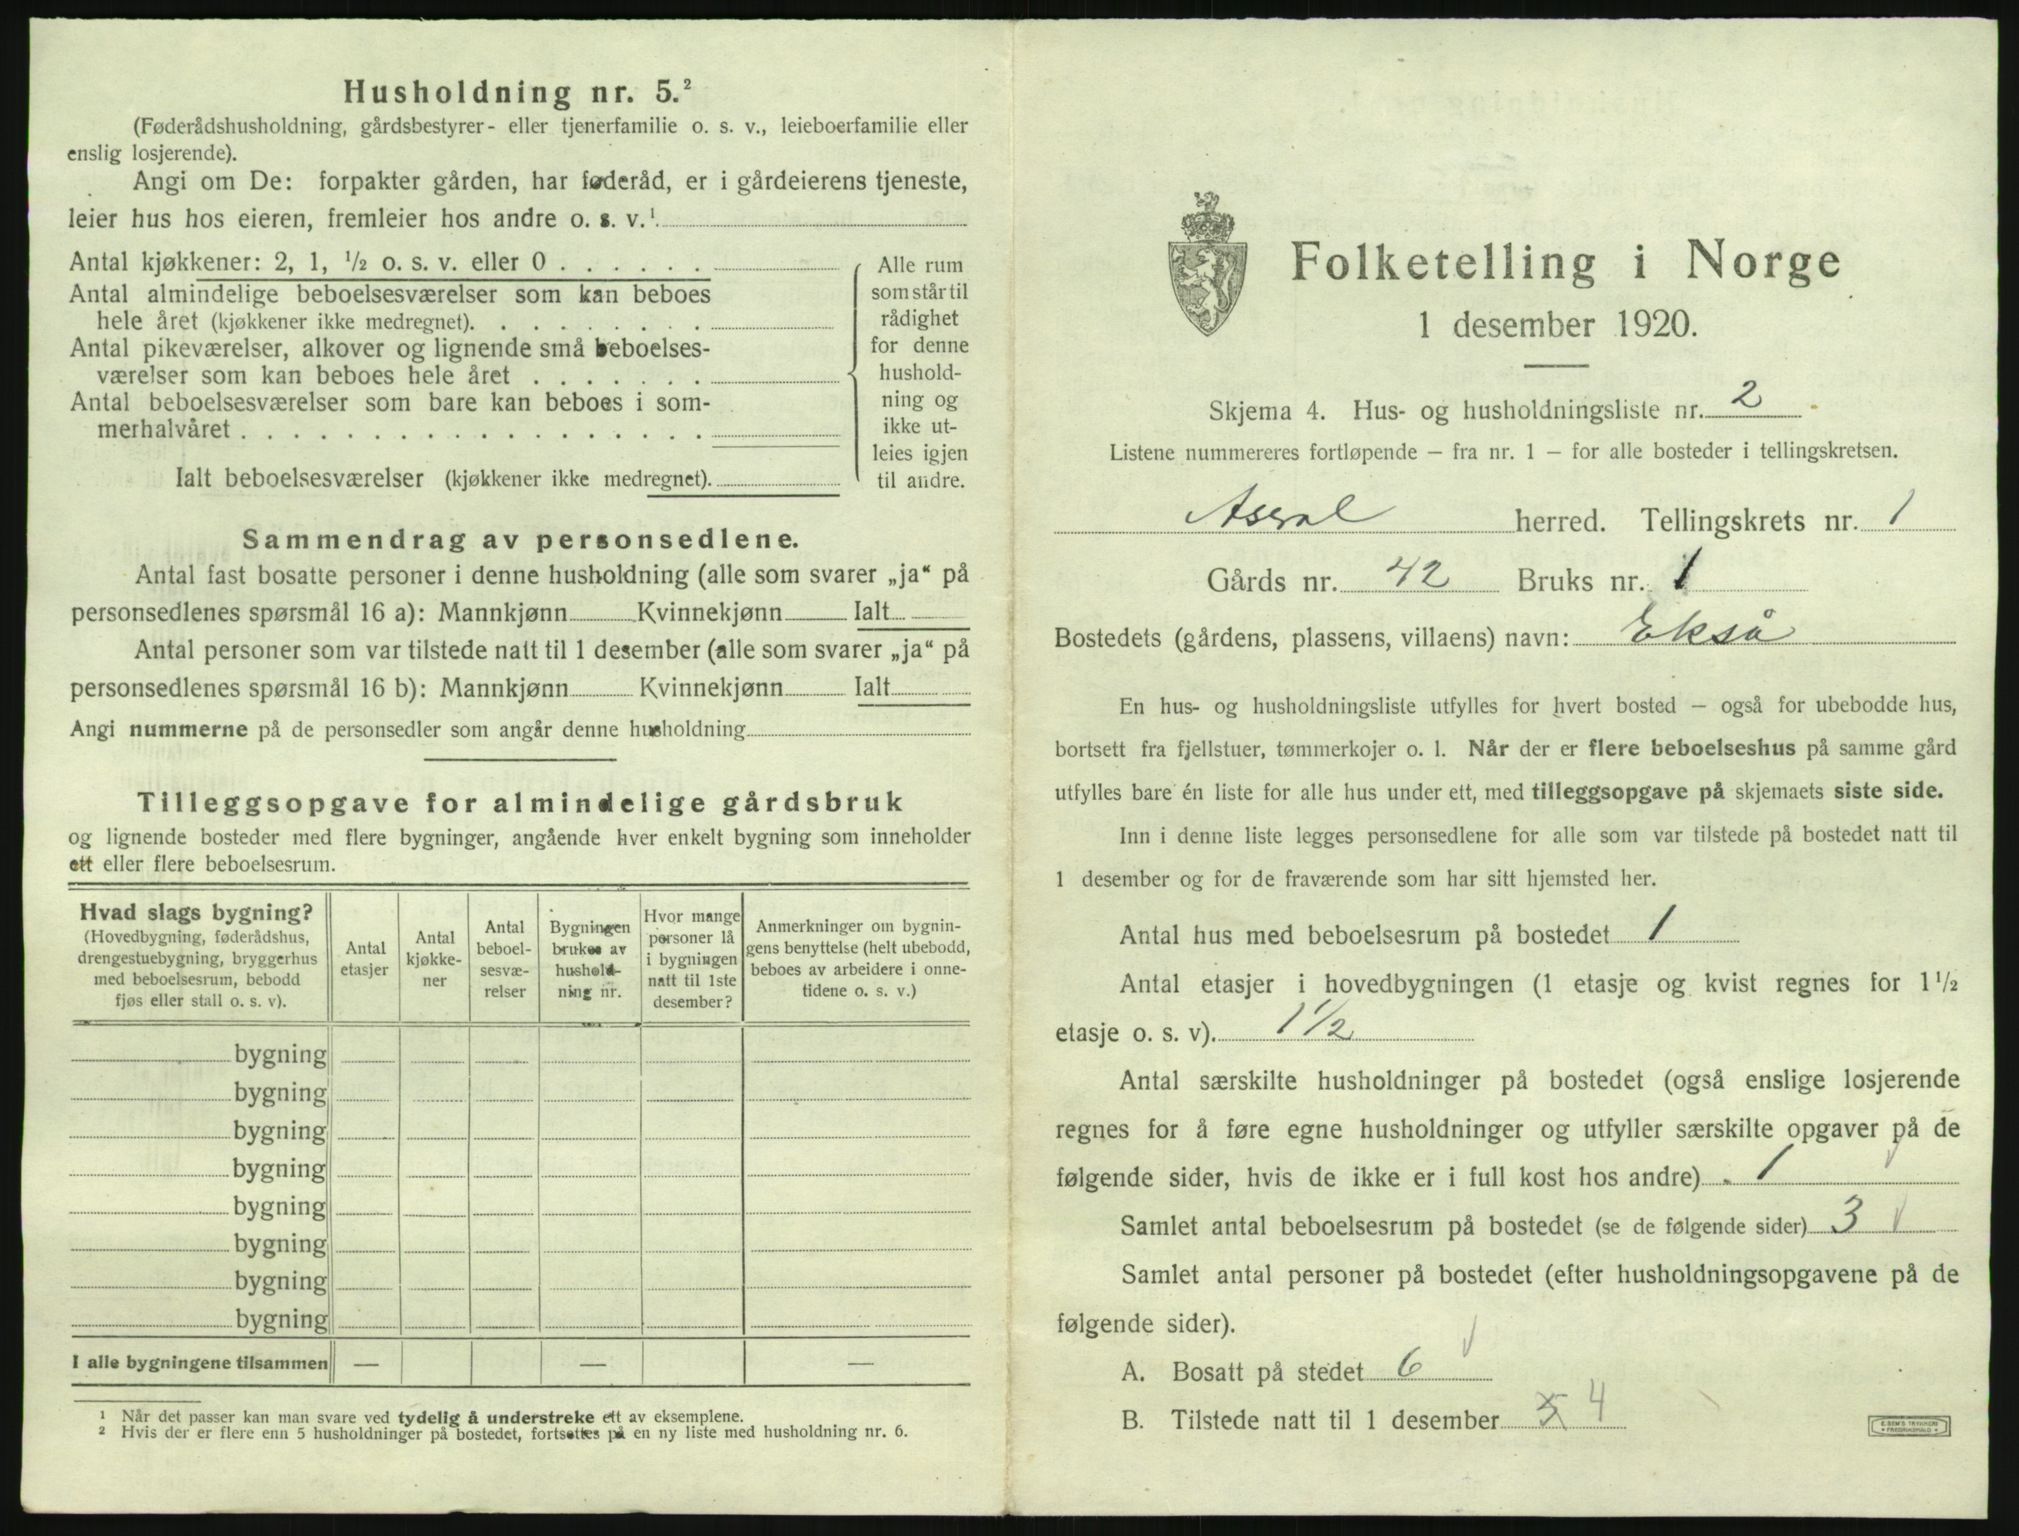 Husholdning nr. 5.²
(Føderådshusholdning, gårdsbestyrer- eller tjenerfamilie o. s. v., leieboerfamilie eller
enslig losjerende).
Angi om De: forpakter gården, har føderåd, er i gårdeierens tjeneste,
leier hus hos eieren, fremleier hos andre o. s. v.¹
Antal kjøkkener: 2, 1, ½ o. s. v. eller 0 . . . . . .
Antal almindelige beboelsesværelser som kan beboes
hele året (kjøkkener ikke medregnet). . . . . . . . .
Antal pikeværelser, alkover og lignende små beboelses-
værelser som kan beboes hele året . . . . . . .
Antal beboelsesværelser som bare kan beboes i som-
merhalvåret . . . . . . . . . . . . . . . . . .
Ialt beboelsesværelser (kjøkkener ikke medregnet).
Alle rum
som står til
rådighet
for denne
hushold-
ning og
ikke ut-
leies igjen
til andre.
Sammendrag av personsedlene.
Antal fast bosatte personer i denne husholdning (alle som svarer „ja“ på
personsedlenes spørsmål 16 a): Mannkjønn Kvinnekjønn Ialt
Antal personer som var tilstede natt til 1 desember (alle som svarer „ja“ på
personsedlenes spørsmål 16 b): Mannkjønn Kvinnekjønn Ialt
Angi nummerne på de personsedler som angår denne husholdning
Tilleggsopgave for almindelige gårdsbruk
og lignende bosteder med flere bygninger, angående hver enkelt bygning som inneholder
ett eller flere beboelsesrum.
Hvad slags bygning?
(Hovedbygning, føderådshus,
drengestuebygning, bryggerhus
med beboelsesrum, bebodd
fjøs eller stall o. s. v).
Antal
etasjer
Antal
kjøkke-
ner
Antal
beboel-
sesvæ-
relser
Bygningen
brukes av
hushold-
ning nr.
Hvor mange
personer lå
i bygningen
natt til 1ste
desember?
Anmerkninger om bygnin-
gens benyttelse (helt ubebodd,
beboes av arbeidere i onne-
tidene o. s. v.)
bygning
bygning
bygning
bygning
bygning
bygning
bygning
bygning
I alle bygningene tilsammen — — —
¹ Når det passer kan man svare ved tydelig å understreke ett av eksemplene.
² Hvis der er flere enn 5 husholdninger på bostedet, fortsettes på en ny liste med husholdning nr. 6.
Folketelling i Norge
1 desember 1920.
Skjema 4. Hus- og husholdningsliste nr. 2
Listene nummereres fortløpende — fra nr. 1 — for alle bosteder i tellingskretsen.
Aseral herred. Tellingskrets nr. 1
Gårds nr. 42 Bruks nr. 1
Bostedets (gårdens, plassens, villaens) navn: Ekså
En hus- og husholdningsliste utfylles for hvert bosted — også for ubebodde hus,
bortsett fra fjellstuer, tømmerkojer o. l. Når der er flere beboelseshus på samme gård
utfylles bare én liste for alle hus under ett, med tilleggsopgave på skjemaets siste side.
Inn i denne liste legges personsedlene for alle som var tilstede på bostedet natt til
1 desember og for de fraværende som har sitt hjemsted her.
Antal hus med beboelsesrum på bostedet 1
Antal etasjer i hovedbygningen (1 etasje og kvist regnes for 1½
etasje o. s. v). 1½
Antal særskilte husholdninger på bostedet (også enslige losjerende
regnes for å føre egne husholdninger og utfyller særskilte opgaver på de
følgende sider, hvis de ikke er i full kost hos andre) . 1
Samlet antal beboelsesrum på bostedet (se de følgende sider) 3
Samlet antal personer på bostedet (efter husholdningsopgavene på de
følgende sider).
A. Bosatt på stedet 6
B. Tilstede natt til 1 desember 4